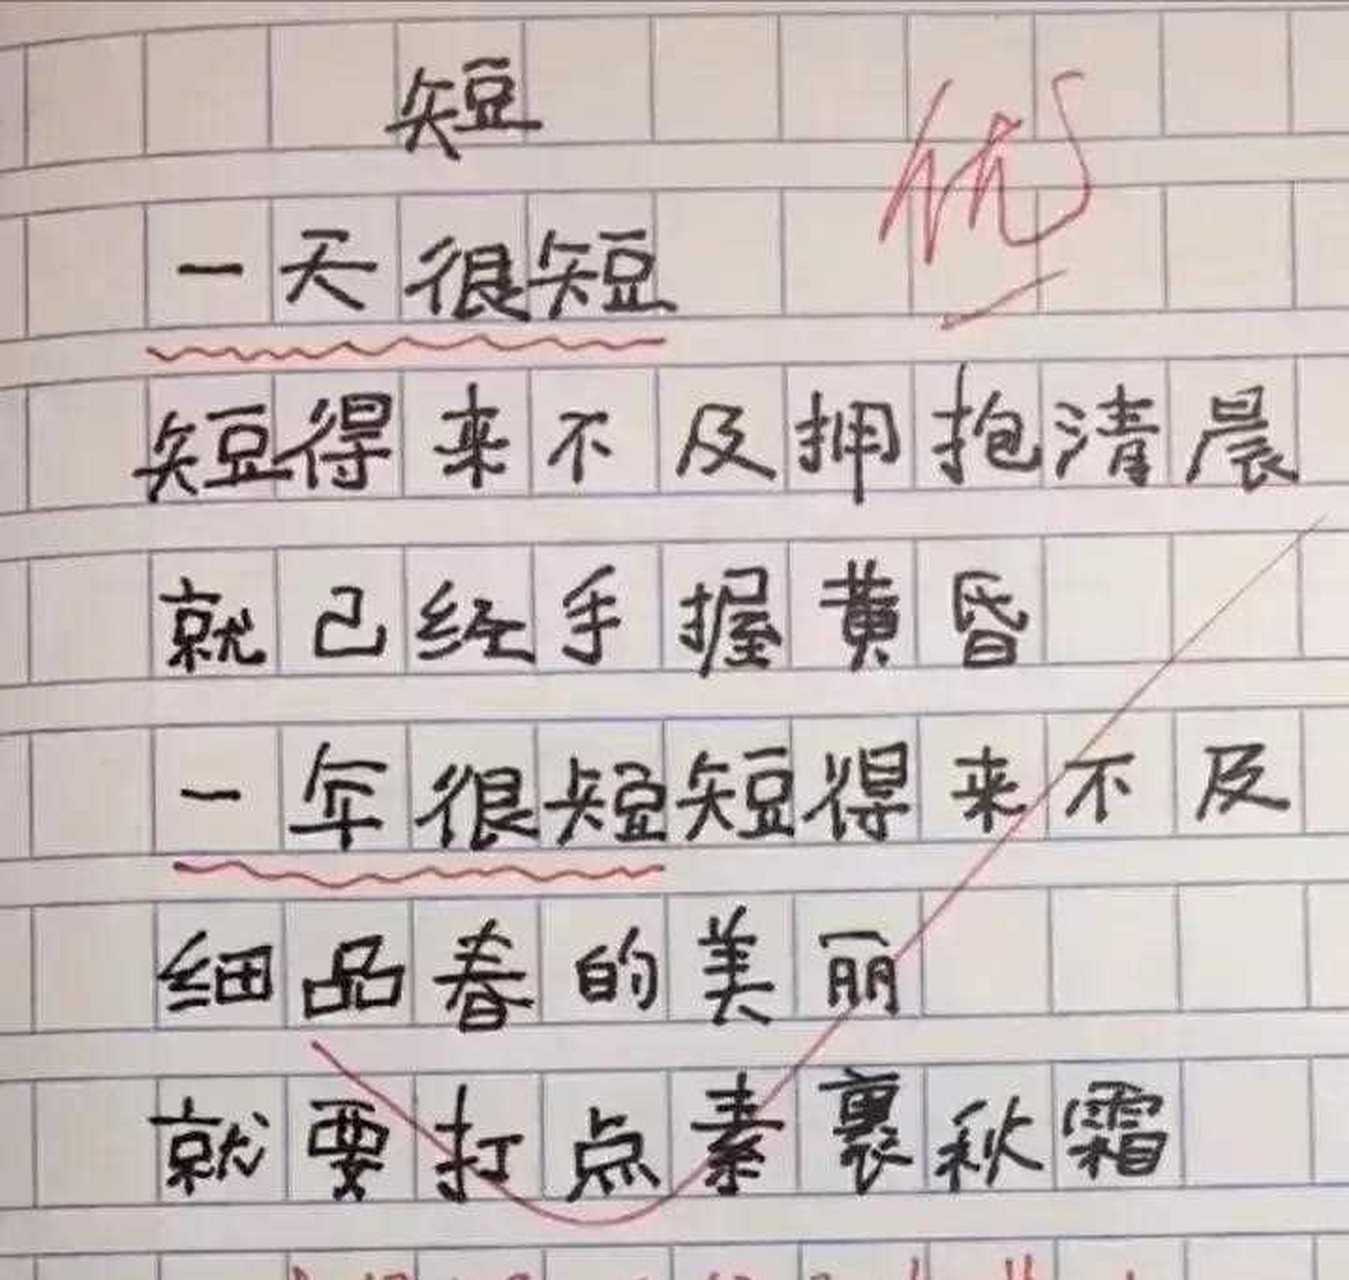 短
优
一天很短
短得来不及拥抱清晨
就已经手握黄昏
一年很短短得来不及
细品春的美丽
就要打点素裹秋霜